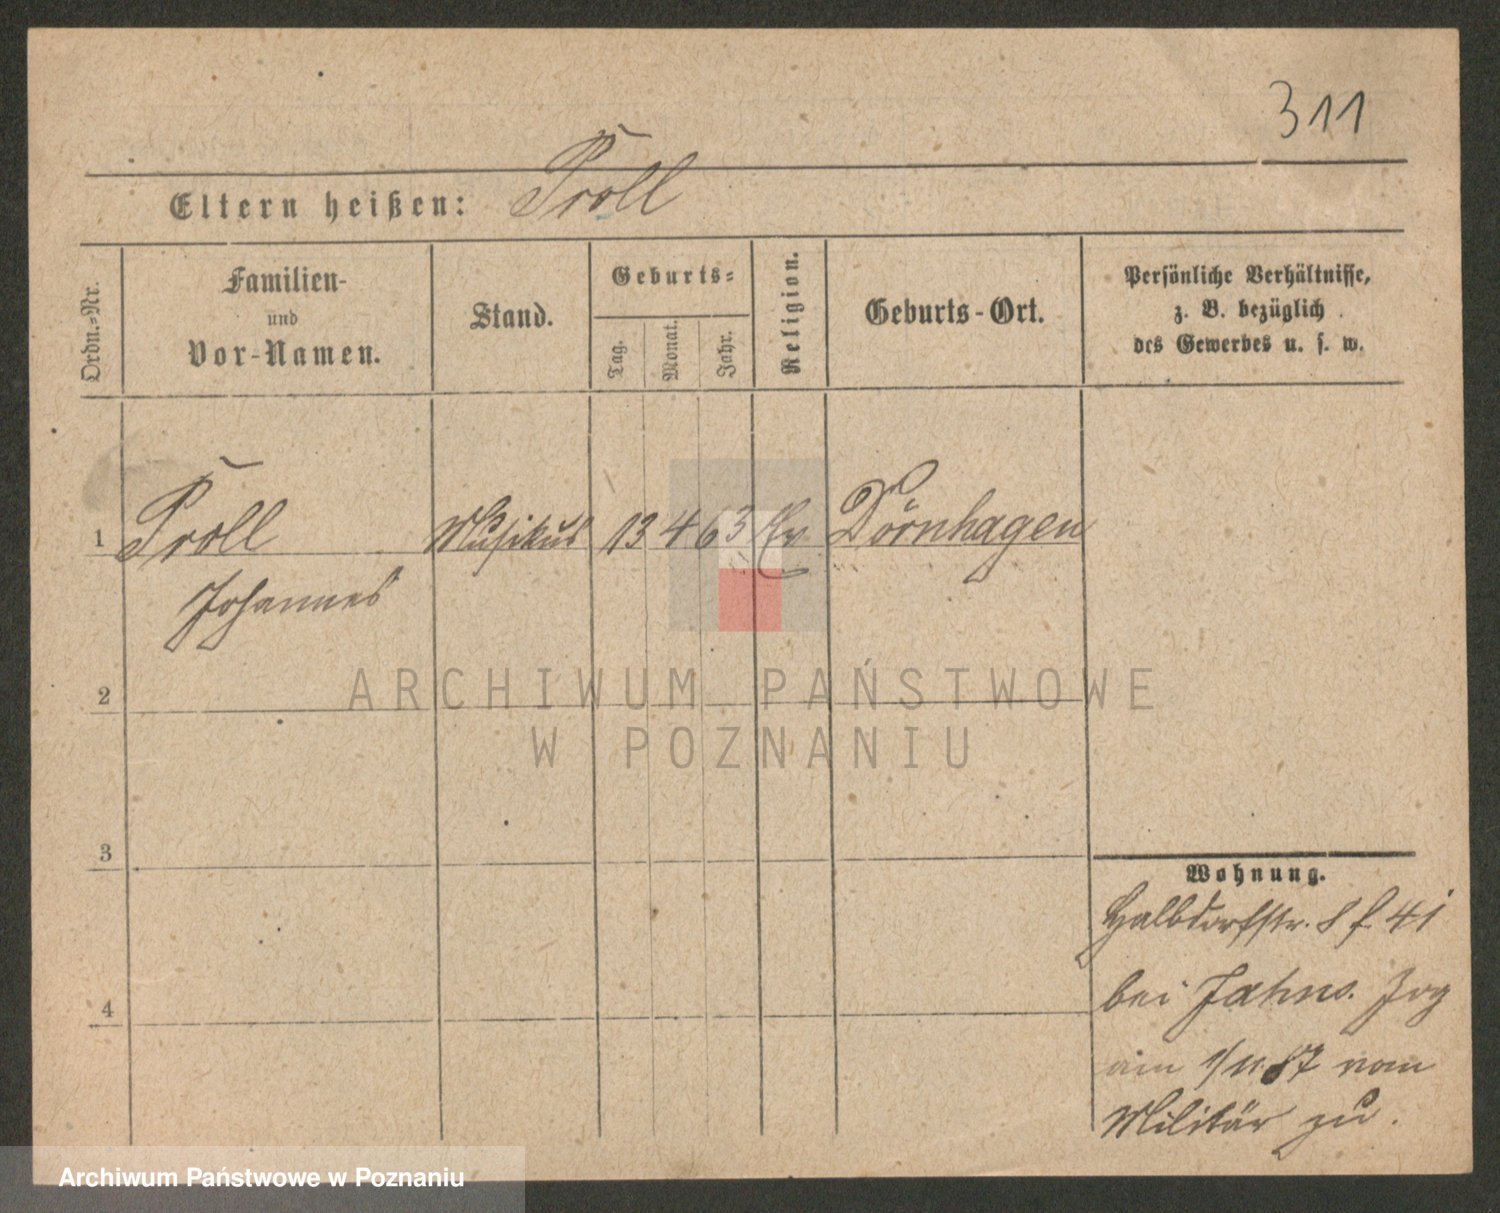 311
Eltern heißen: Proll
Ordn.-Nr.
Familien-
und
Vor-Namen.
Stand.
Geburts-
Tag.
Monat.
Jahr.
Religion.
Geburts-Ort.
Persönliche Verhältnisse,
z. B. bezüglich
des Gewerbes u. s. w.
1 Proll Musikus 13 4 63 Ev Dörnhagen
Johannes
2
3
4
Wohnung.
Halbdorfstr. 8 f. 41
bei Jahns. Zog
am 1/11 87 vom
Militär zu.
ARCHIWUM PAŃSTWOWE
W POZNANIU
Archiwum Państwowe w Poznaniu